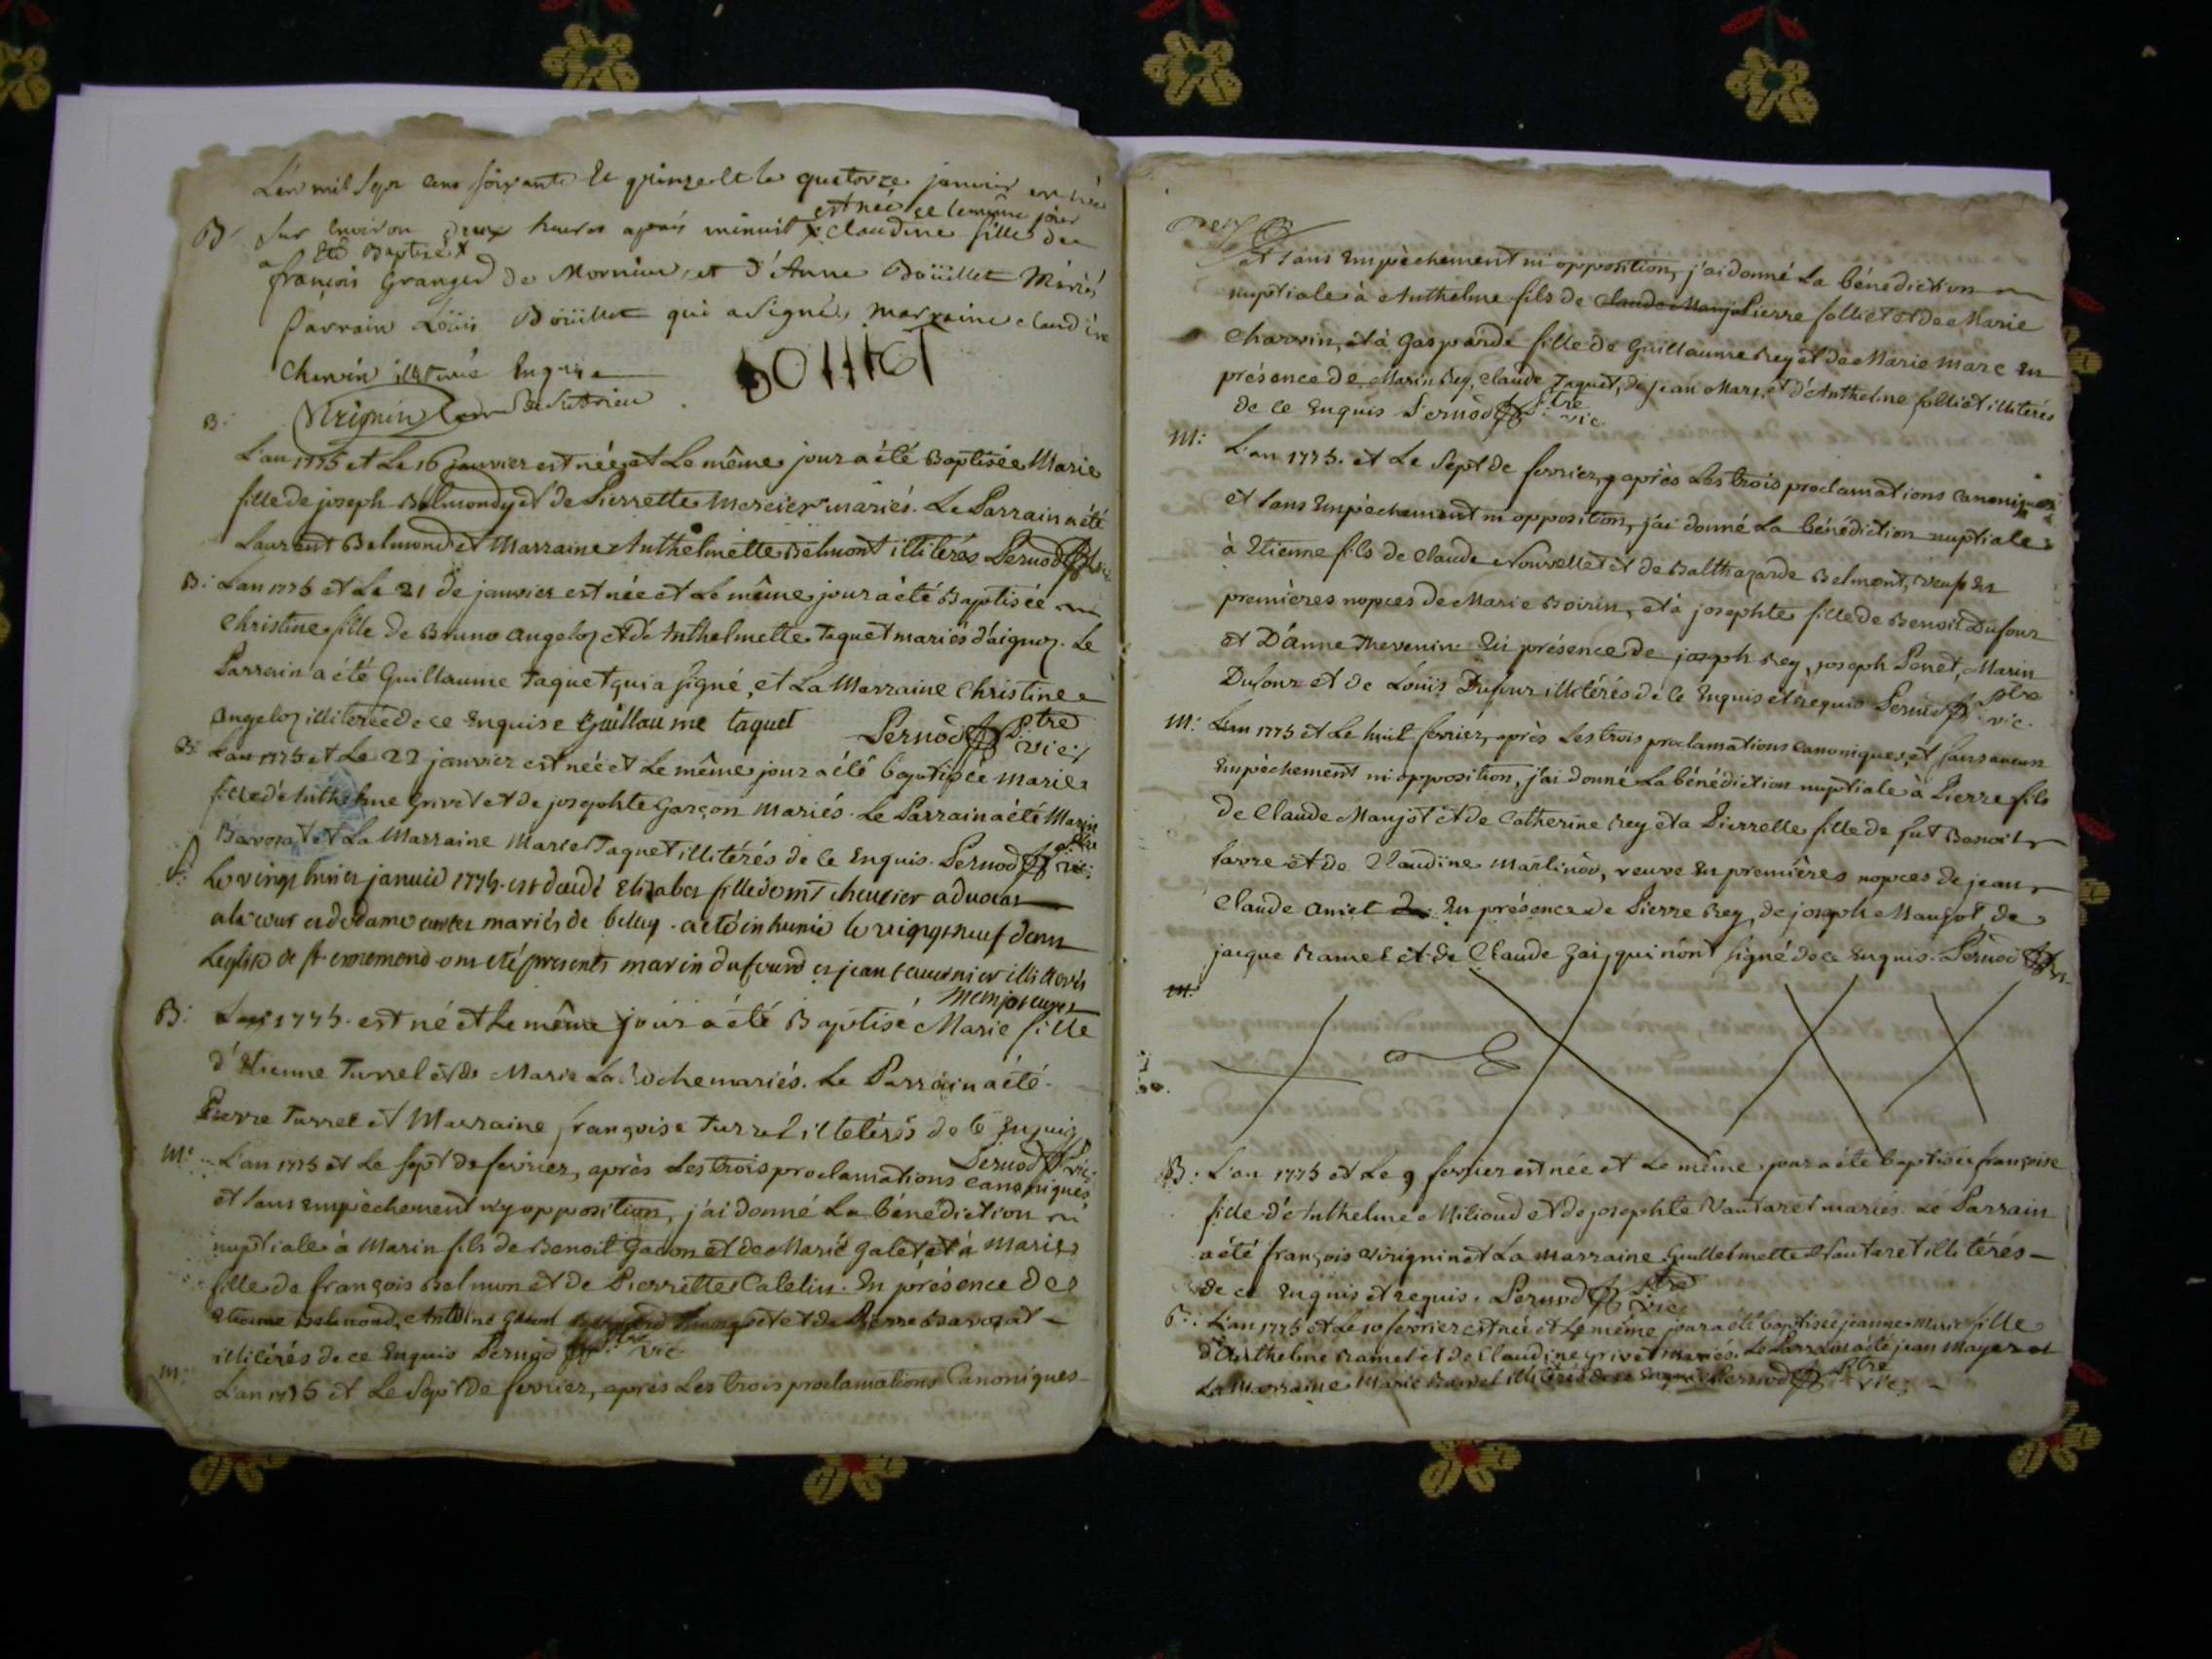 L'an mil sept cens soixante et quinze et le quatorze janvier
B. sur environ deux heures après minuit x claudine fille de
est née et le même jour
a été Baptisée x
françois Granger de Mornieu, et d'Anne Boüillet Mariés
Parrain Loüis Boüillet qui a signé, marraine claudine
Chervin illiterée Enquise
BOIIIET
Virignin
B. L'an 1775 et Le 16 janvier est née et Le même jour a été Baptisée Marie
fille de joseph Belmond et de Pierrette Mercier mariés. Le Parrain a été
Laurent Belmond et Marraine Anthelmette Belmont illitérés Pernod
B: L'an 1775 et Le 21 de janvier est née et Le même jour a été Baptisée
Christine fille de Bruno angeloz et d'Anthelmette Taquet mariés d'aignoz. Le
Parrain a été Guillaume Taquet qui a signé, et La Marraine Christine
angeloz illiterée de ce Enquise Guillaume taquet Pernod Ptre vic:
B: L'an 1775 et Le 22 janvier est née et Le même jour a été baptisée Marie
fille d'Anthelme Grivet et de josephte Garçon Mariés. Le Parrain a été Marin
Bavozat et La Marraine Marie Taquet illitérés de ce Enquis. Pernod Ptre vic:
S: Le vingt huit janvié 1775. est décédé Elizabet fille de mr cheurier advocat
a la cour et de dame mariés de belley. a eté inhumé le vingt neuf dans
L'eglise de st ennemond ont eté presents marin dufourd et jean illiterés
B: L'an 1775. est né et Le même jour a été Baptisé Marie fille
d'Etienne Turrel et de Marie La Roche mariés. Le Parrain a été
Pierre Turrel et Marraine françoise Turrel illetérés de ce Enquis
Pernod Ptre vic:
M: L'an 1775 et Le sept de fevrier, après Les trois proclamations Canoniques
et sans empêchement ny opposition, j'ai donné La bénédiction
nuptiale à Marin fils de Benoit Gacon et de Marie Galet et à Marie
fille de françois Belmon et de Pierrette Catelin. En présence de
Etienne Belmond, Antoine et de Pierre Bavozat
illitérés de ce Enquis Pernod Ptre vic.
M. L'an 1775 et Le Sept de fevrier, après Les trois proclamations Canoniques
et sans Empêchement ni opposition, j'ai donné La bénédiction
nuptiale à Anthelme fils de Claude Manjot Pierre folliet et de Marie
Charvin, et à Gasparde fille de Guillaume Rey et de Marie Marc En
présence de Marin Rey, Claude Jaquet, de jean Marc, et d'Anthelme folliet illiterés
de ce Enquis Pernod Ptre vic.
M: L'an 1775. et Le Sept de fevrier, après Les trois proclamations canoniques
et sans Empêchement ni opposition, j'ai donné La bénédiction nuptiale
à Etienne fils de Claude Nouvellet et de Balthazarde Belmont, veuf En
premières nopces de Marie Boirin, et à josephte fille de Benoit Dufour
et D'anne Thevenin En présence de joseph Rey, joseph Penet, Marin
Dufour et de Loüis Dufour illitérés de ce Enquis et requis Pernod Ptre vic.
M: L'an 1775 et Le huit fevrier, après Les trois proclamations canoniques, et sans aucun
Empêchement ni opposition, j'ai donné La bénédiction nuptiale à Pierre fils
de Claude Manjot et de Catherine Rey et a Pierrette fille de fut Benoit
favre et de Claudine Martinod, veuve En premières nopces de jean
Claude Amiet En présence de Pierre Rey, de joseph Manjot, de
jacque Ramel et de Claude Zai, qui n'ont signé de ce Enquis. Pernod
M:
B: L'an 1775 et Le 9 fevrier est née et Le même jour a été baptisée françoise
fille d'Anthelme Milioud et de josephte Vautaret mariés. Le Parrain
a été françois Virignin et La Marraine Guillelmette Vautaret illitérés
de ce Enquis et requis. Pernod Ptre vic.
B: L'an 1775 et Le 10 fevrier est née et Le même jour a été baptisée jeanne Marie fille
d'Anthelme Ramel et de Claudine Grivet mariés. Le Parrain a été jean Mayer et
La Marraine Marie Ramel illitérés de ce Enquis Pernod Ptre vic: